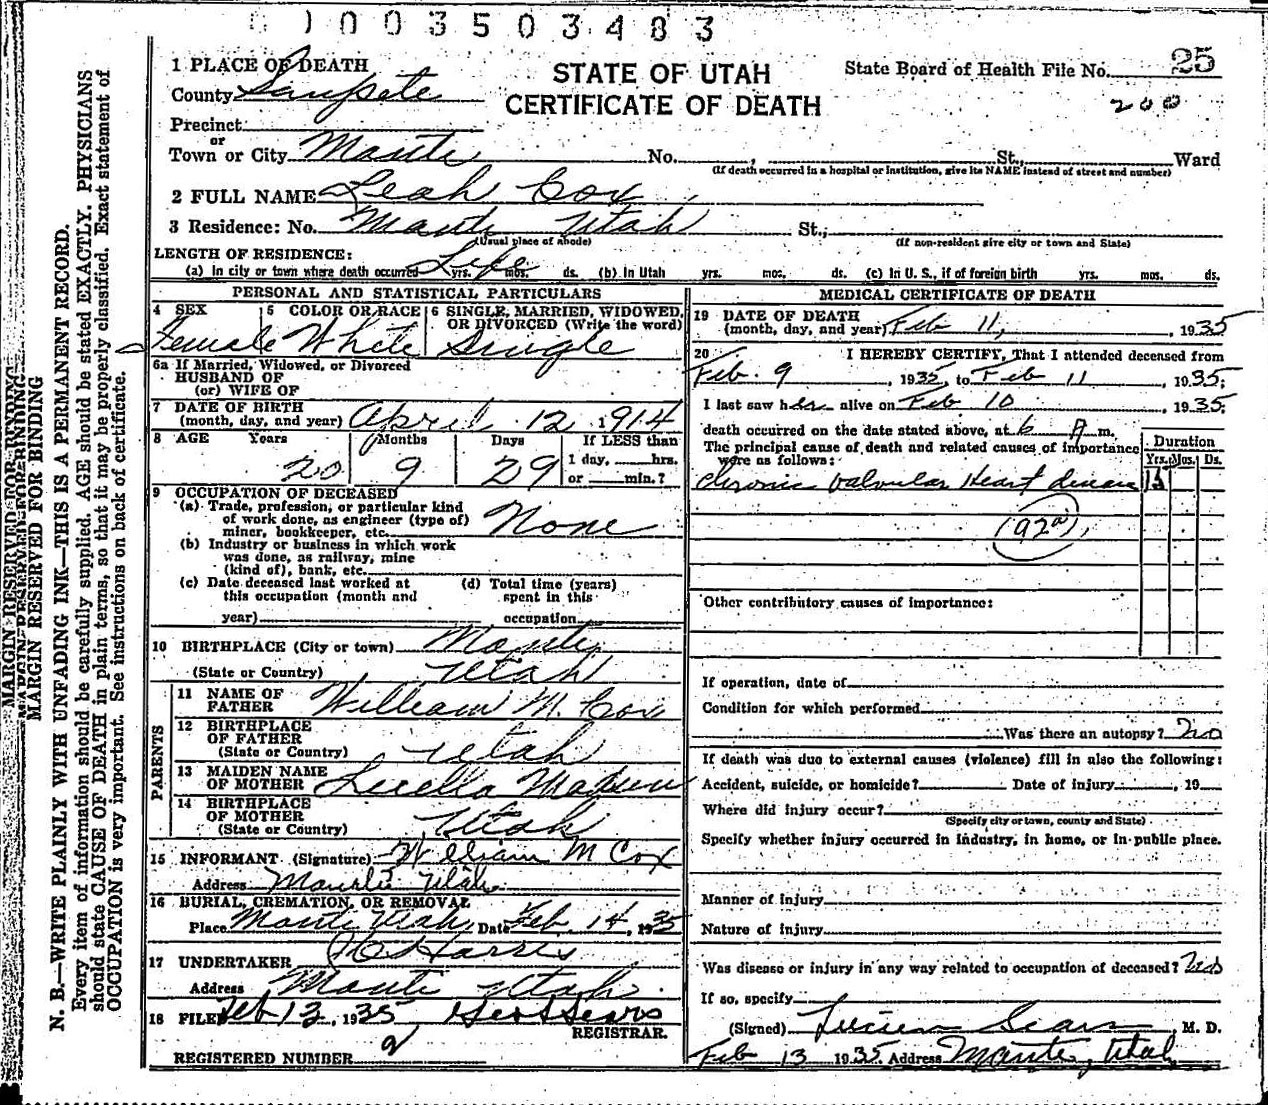 0 1 0 0 3 5 0 3 4 8 3
STATE OF UTAH
CERTIFICATE OF DEATH
State Board of Health File No. 25
200
1 PLACE OF DEATH
County Sanpete
Precinct
or
Town or City Manti No. , St., Ward
(If death occurred in a hospital or institution, give its NAME instead of street and number)
2 FULL NAME Leah Cox
3 Residence: No. Manti Utah St.,
(Usual place of abode) (If non-resident give city or town and State)
LENGTH OF RESIDENCE:
(a) In city or town where death occurred Life yrs. mos. ds. (b) In Utah yrs. mos. ds. (c) In U. S., if of foreign birth yrs. mos. ds.
PERSONAL AND STATISTICAL PARTICULARS
4 SEX
Female
5 COLOR OR RACE
White
6 SINGLE, MARRIED, WIDOWED,
OR DIVORCED (Write the word)
Single
6a If Married, Widowed, or Divorced
HUSBAND OF
(or) WIFE OF
7 DATE OF BIRTH
(month, day, and year) April 12, 1914
8 AGE Years Months Days If LESS than
20 9 29 1 day, hrs.
or min.?
9 OCCUPATION OF DECEASED
(a) Trade, profession, or particular kind
of work done, as engineer (type of)
miner, bookkeeper, etc. None
(b) Industry or business in which work
was done, as railway, mine
(kind of), bank, etc.
(c) Date deceased last worked at
this occupation (month and
year)
(d) Total time (years)
spent in this
occupation
10 BIRTHPLACE (City or town) Manti
(State or Country) Utah
PARENTS
11 NAME OF
FATHER William M. Cox
12 BIRTHPLACE
OF FATHER
(State or Country) Utah
13 MAIDEN NAME
OF MOTHER Luella
14 BIRTHPLACE
OF MOTHER
(State or Country) Utah
15 INFORMANT (Signature) William M Cox
Address Manti Utah
16 BURIAL, CREMATION, OR REMOVAL
Place Manti Utah Date Feb. 14, 1935
17 UNDERTAKER Harris
Address Manti Utah.
18 FILED Feb 13, 1935 Sears
REGISTRAR.
REGISTERED NUMBER
MEDICAL CERTIFICATE OF DEATH
19 DATE OF DEATH
(month, day, and year) Feb 11, , 1935
20 I HEREBY CERTIFY, That I attended deceased from
Feb. 9 , 1935, to Feb 11 , 1935;
I last saw her alive on Feb 10 , 1935;
death occurred on the date stated above, at 6 A m.
The principal cause of death and related causes of importance
were as follows:
Duration
Yrs. Mos. Ds.
Chronic Valvular Heart disease 15
(92a)
Other contributory causes of importance:
If operation, date of
Condition for which performed
Was there an autopsy? No
If death was due to external causes (violence) fill in also the following:
Accident, suicide, or homicide? Date of injury , 19
Where did injury occur?
(Specify city or town, county and State)
Specify whether injury occurred in industry, in home, or in public place.
Manner of injury
Nature of injury
Was disease or injury in any way related to occupation of deceased? No
If so, specify
(Signed) Lucien Sears , M. D.
Feb 13 1935 Address Manti, Utah
MARGIN RESERVED FOR BINDING
MARGIN RESERVED FOR BINDING
MARGIN RESERVED FOR BINDING
N. B.—WRITE PLAINLY WITH UNFADING INK—THIS IS A PERMANENT RECORD.
Every item of information should be carefully supplied. AGE should be stated EXACTLY. PHYSICIANS
should state CAUSE OF DEATH in plain terms, so that it may be properly classified. Exact statement of
OCCUPATION is very important. See instructions on back of certificate.